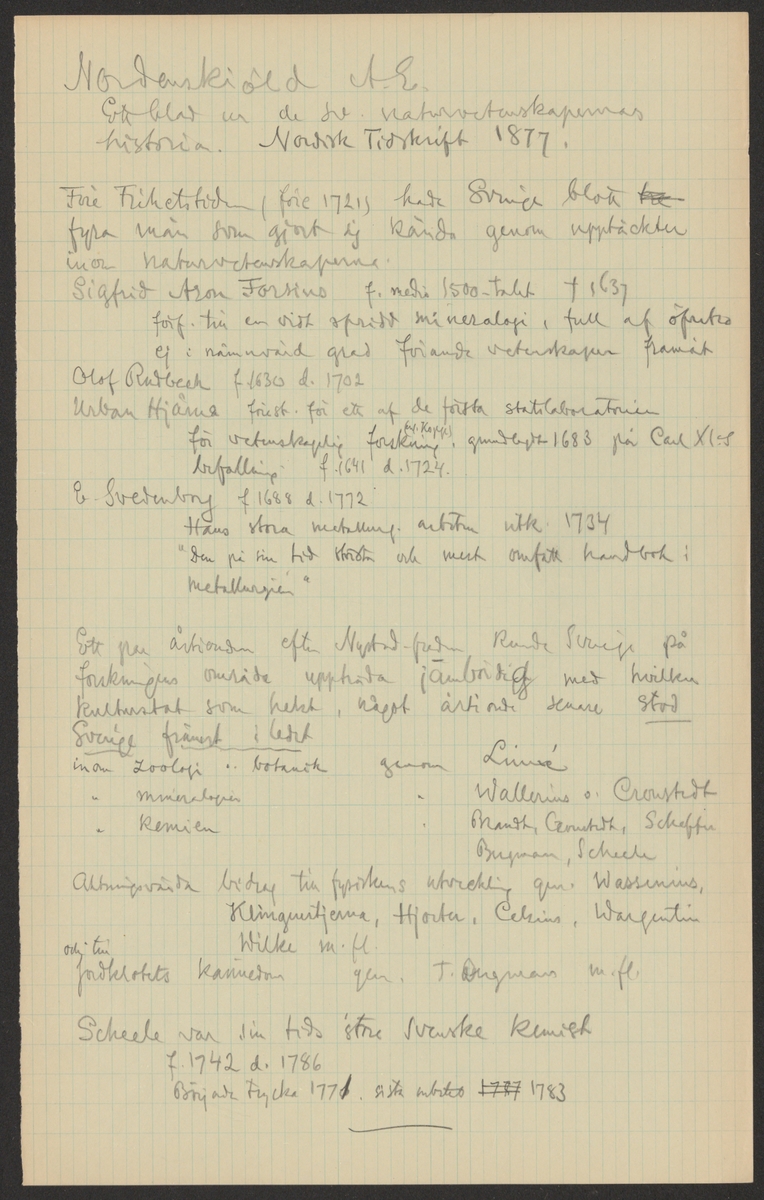 Nordenskiöld A.E.
Ett blad ur de sv. naturvetenskapernas
historia. Nordisk Tidskrift 1877.
Före Frihetstiden (före 1721) hade Sverige blott
fyra män som gjort sig kända genom upptäckter
inom naturvetenskaperna.
Sigfrid Aron Forsius f. medio 1500-talet † 1637
förf. till en vidt spridd mineralogi, full af
ej i nämnvärd grad förande vetenskapen framåt
Olof Rudbeck f. 1630 d. 1702
Urban Hjärne förest. för ett af de första statslaboratorier
för vetenskaplig forskning, grundlagdt 1683 på Carl XI:s
befallning. f. 1641 d. 1724.
E. Svedenborg f 1688 d. 1772
Hans stora metallurg. arbeten utk. 1734
"Den på sin tid största och mest omfatt handbok i
metallurgien"
Ett par årtionden efter Nystad-freden kunde Sverige på
forskningens område uppträda jämbördig med hvilken
kulturstat som helst, något årtionde senare stod
Sverige främst i ledet
inom zoologi o. botanik genom Linné
" mineralogien " Wallerius o. Cronstedt
" kemien " Brandt, Cronstedt, Scheffer
Bergman, Scheele
Aktningsvärda bidrag till fysikens utveckling gen. Wassenius,
Klingenstjerna, Hjorter, Celsius, Wargentin
Wilke m.fl.
och till
jordklotets kännedom gen. T. Bergman m.fl.
Scheele var sin tids störe svenske kemist
f. 1742 d. 1786
Började trycka 1771. sista arbetet 1787 1783